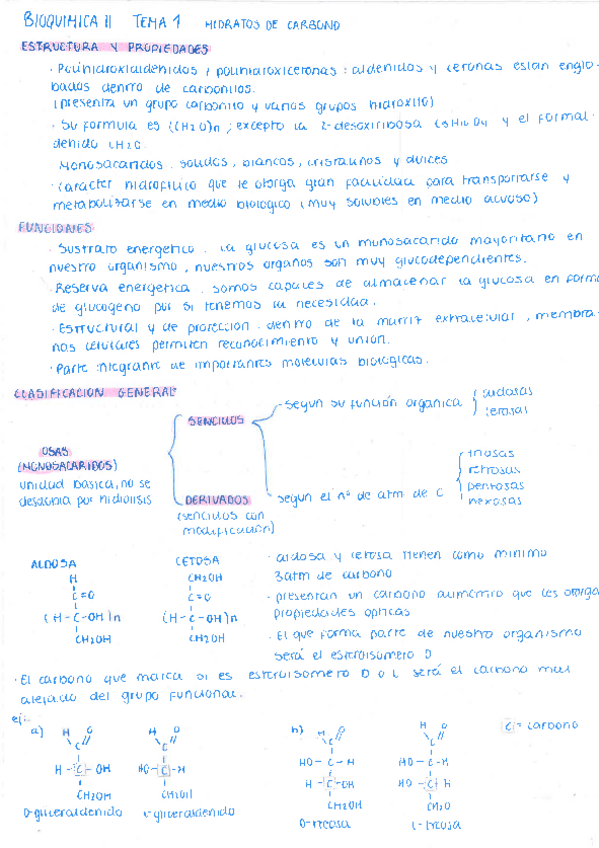 BIOQUIMICA II TEMA 1 HIDRATOS DE CARBONO
ESTRUCTURA Y PROPIEDADES
· Polihidroxialdehidos / polihidroxicetonas : aldehidos y cetonas estan englo-
bados dentro de carbonilos.
(presenta un grupo carbonilo y varios grupos hidroxilo)
· Su formula es (CH2O)n ; excepto la 2-desoxirribosa C5H10O4 y el formal-
dehido CH2O.
Monosacaridos : solidos, blancos, cristalinos y dulces
· Caracter hidrofilico que le otorga gran facilidad para transportarse y
metabolizarse en medio biologico (muy solubles en medio acuoso)
FUNCIONES
· Sustrato energetico . La glucosa es un monosacarido mayoritario en
nuestro organismo, nuestros organos son muy glucodependientes.
· Reserva energetica . somos capaces de almacenar la glucosa en forma
de glucogeno por si tenemos la necesidad.
· Estructural y de proteccion . dentro de la matriz extracelular, membra-
nas celulares permiten reconocimiento y union.
· Parte integrante de importantes moleculas biologicas.
CLASIFICACION GENERAL
OSAS
(MONOSACARIDOS)
unidad basica, no se
desdobla por hidrolisis
SENCILLOS
- segun su función organica
aldosas
cetosas
DERIVADOS
(sencillos con
modificación)
segun el nº de atm de C
triosas
tetrosas
pentosas
hexosas
ALDOSA
H
C=O
(H-C-OH)n
CH2OH
CETOSA
CH2OH
C=O
(H-C-OH)n
CH2OH
· aldosa y cetosa tienen como minimo
3atm de carbono
· presentan un carbono asimetrico que les otorga
propiedades opticas
· El que forma parte de nuestro organismo
será el esteroisomero D
· El carbono que marca si es esteroisomero D o L será el carbono mas
alejado del grupo funcional.
ej:
a)
H O
C
H - C - OH
CH2OH
D-gliceraldehido
H O
C
HO - C - H
CH2OH
L-gliceraldehido
b)
H O
C
HO - C - H
H - C - OH
CH2OH
D-treosa
H O
C
HO - C - H
CH2O
L-treosa
C = carbono